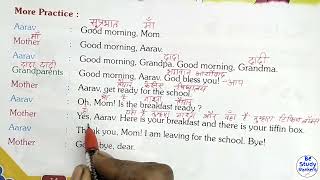 More Practice :
सुप्रभात माँ
Aarav : Good morning, Mom.
माँ
Mother : Good morning, Aarav.
दादा दादी
Aarav : Good morning, Grandpa. Good morning, Grandma.
दादा, दादी
Grandparents : Good morning, Aarav. God bless you! आप
Mother : Aarav, get ready for the school.
Aarav : Oh, Mom! Is the breakfast ready?
Mother : Yes, Aarav. Here is your breakfast and there is your tiffin box.
Aarav : Thank you, Mom! I am leaving for the school. Bye!
Mother : Goodbye, dear.
Be Study Workers